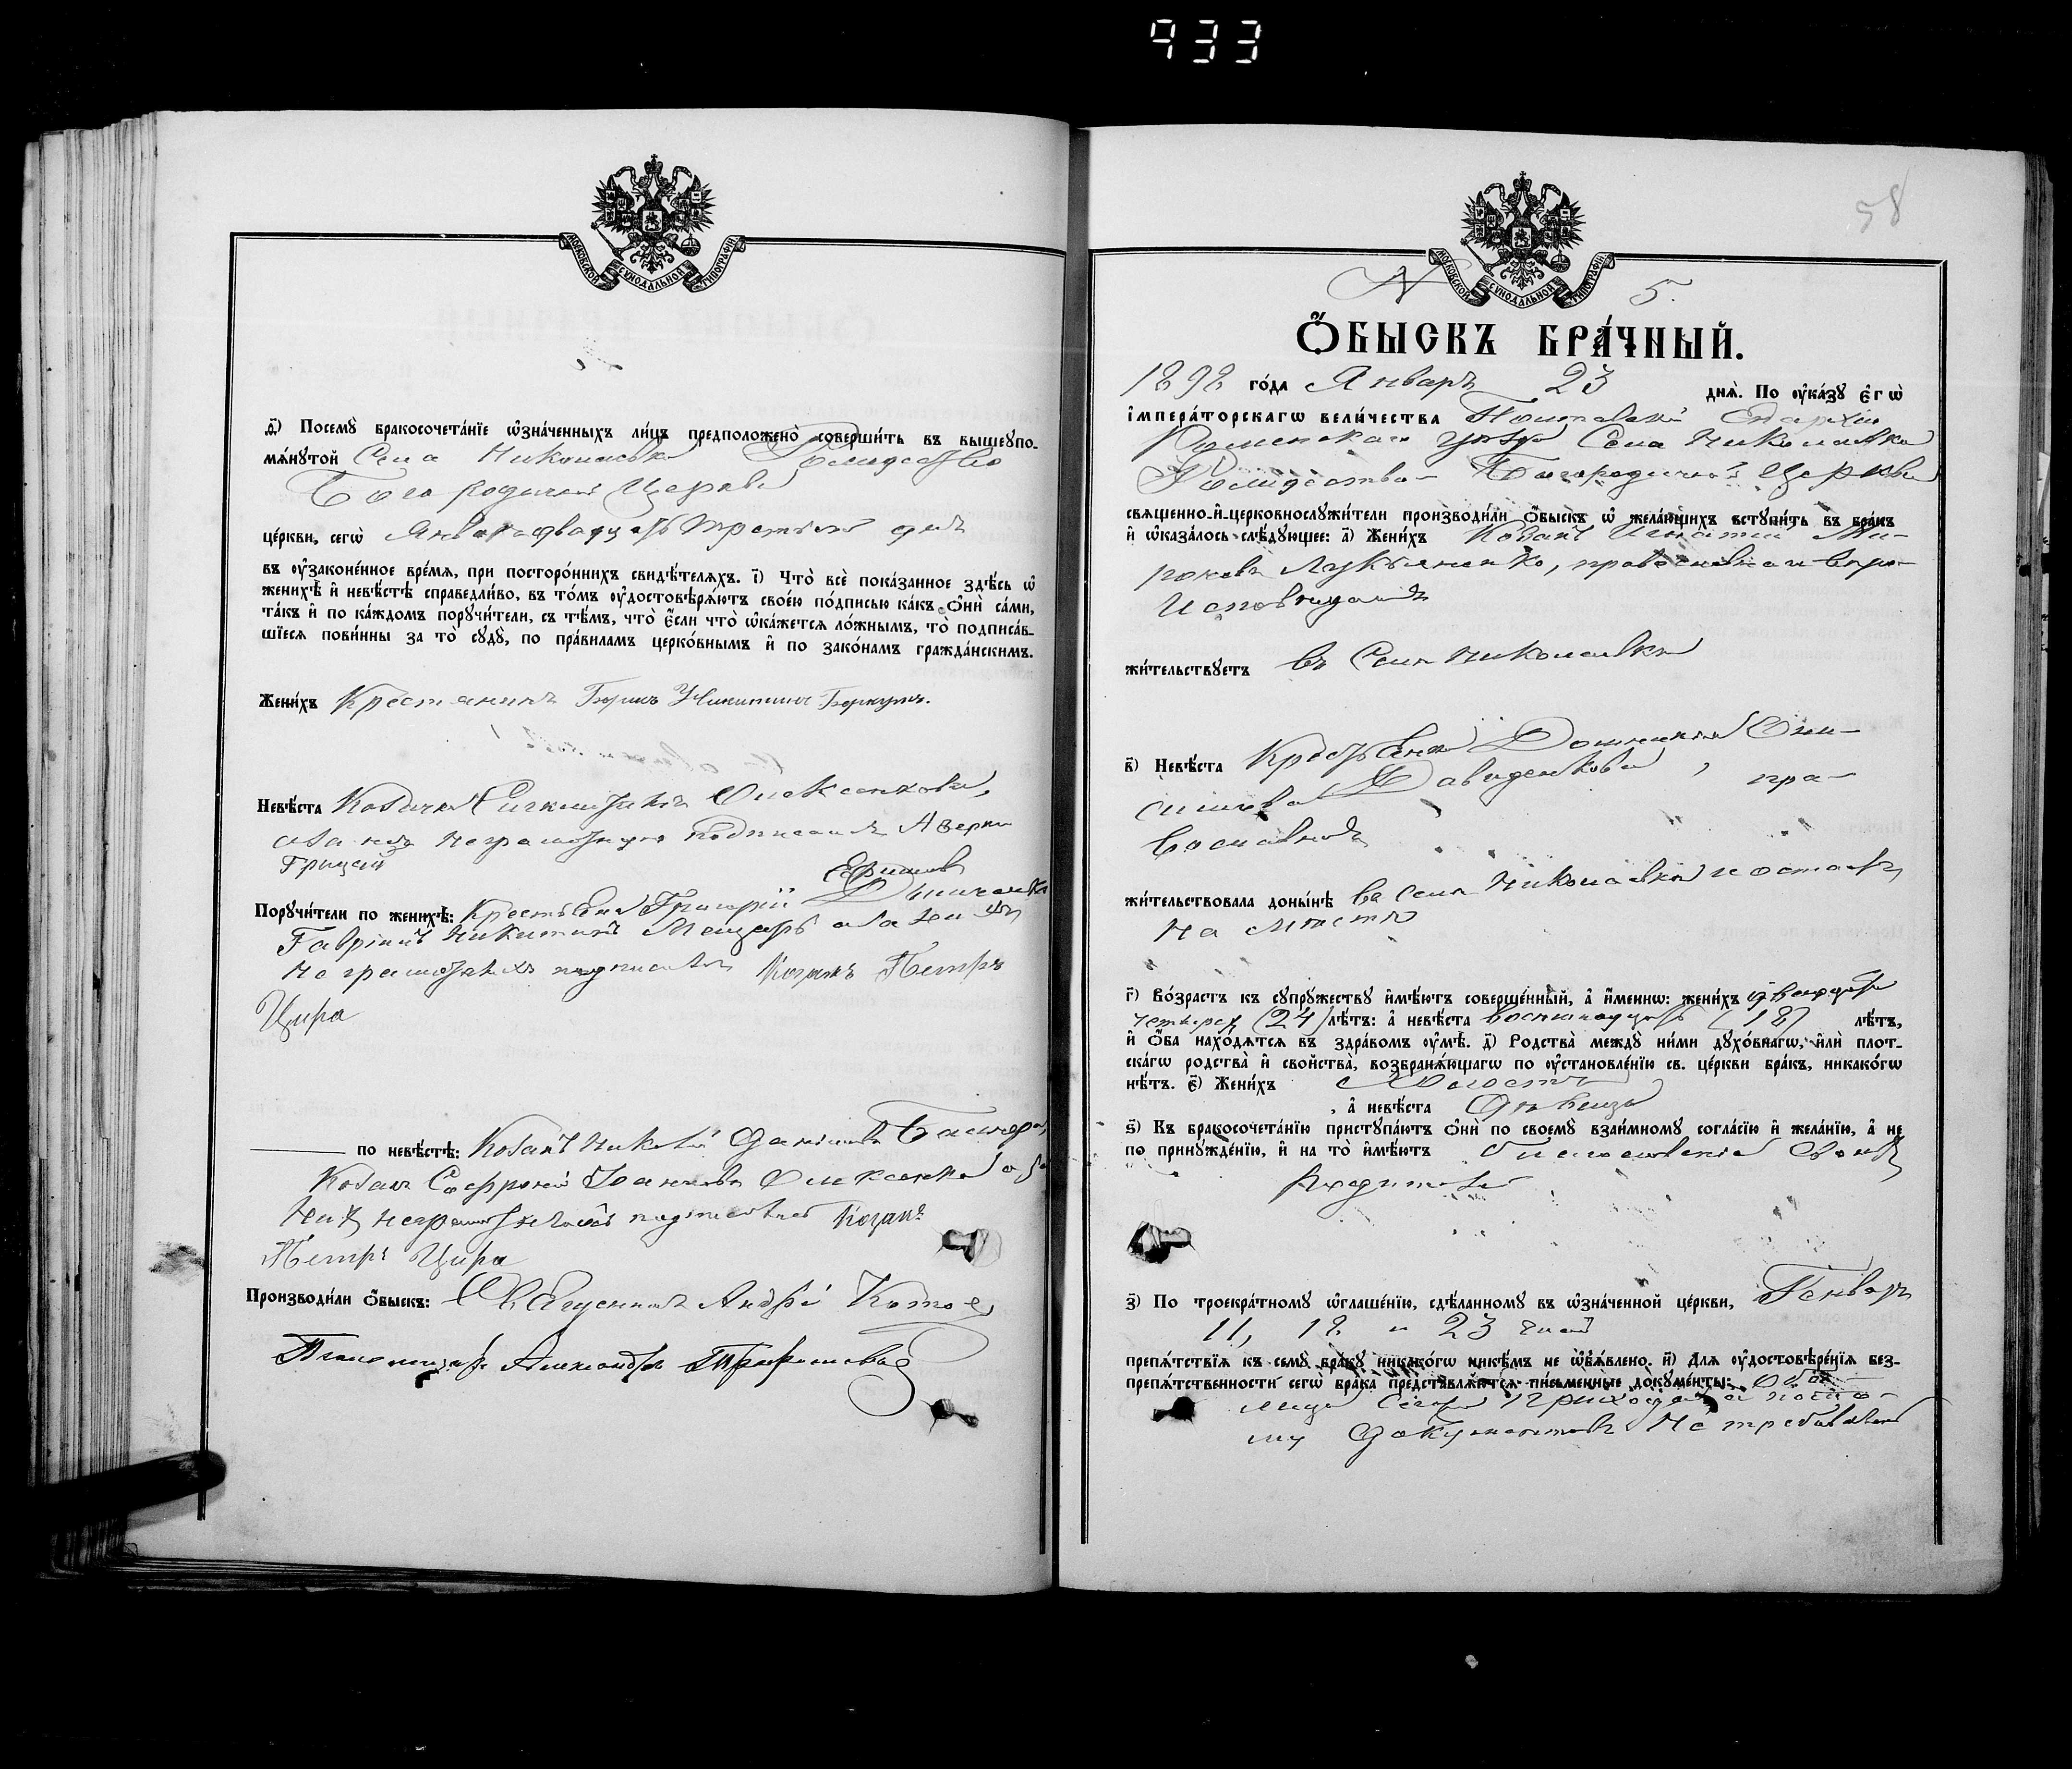 933
МОСКОВСКОЙ СѴНОДАЛЬНОЙ ТИПОГРАФІИ
ѳ҃) Посемꙋ̀ бракосочета́нїе ѡ҆зна́ченныхъ ли́цъ предположено̀ соверши́ть въ вышеꙋпо-
мѧ́нꙋтой Села Николаевки Рождество
Богородичной Церкви
це́ркви, сегѡ̀ Января двадцать третьяго дня
въ ᲂу҆зако́ненное вре́мѧ, при посторо́ннихъ свидѣ́телѧхъ. і҃) Что̀ всѐ пока́занное здѣ́сь ѡ҆
женихѣ̀ и҆ невѣ́стѣ справедли́во, въ то́мъ ᲂу҆достовѣрѧ́ютъ свое́ю по́дписью ка́къ ѻ҆нѝ са́ми,
та́къ и҆ по ка́ждомъ порꙋчи́тели, съ тѣ́мъ, что̀ є҆́сли что̀ ѡ҆ка́жетсѧ ло́жнымъ, то̀ подписа́в-
шїесѧ пови́нны за то̀ сꙋдꙋ̀, по пра́виламъ церко́внымъ и҆ по зако́намъ гражда́нскимъ.
Жени́хъ Крестянинъ Никитинъ
Невѣ́ста Козачка Олексенкова,
а за нея неграмотную подписался Аверки
Грицай
Ефимов
Порꙋчи́тели по женихѣ̀: Крестьяне Григорій
Гавріилъ Никитинъ а за нихъ
неграмотныхъ подписался Козакъ Петръ
Цира
по невѣ́стѣ: Козакъ Николай
Козакъ Софроній Іоанновъ Олексенко а за
нихъ неграмотныхъ подписался Козакъ
Петръ Цира
Производи́ли ѻ҆́быскъ: Священникъ Андрей
Псаломщикъ Александръ
58
МОСКОВСКОЙ СѴНОДАЛЬНОЙ ТИПОГРАФІИ
N 5.
Ѻ҆́БЫСКЪ БРА́ЧНЫЙ.
1898 го́да Январь 23 днѧ̀. По ᲂу҆ка́зꙋ є҆гѡ̀
і҆мпера́торскагѡ вели́чества Полтавской Епархіи
Роменскаго уѣзда Села Николаевки
Рождество Богородичной Церкви
свѧщенно-и҆-церковнослꙋжи́тели производи́ли ѻ҆́быскъ ѡ҆ жела́ющихъ встꙋпи́ть въ бра́къ
и҆ ѡ҆каза́лось слѣ́дꙋющее: а҃) Жени́хъ Козакъ Игнатій Ми-
роновъ Лукьяненко, православнаго вѣро-
исповѣданія
жи́тельствꙋетъ въ Селѣ Николаевкѣ
в҃) Невѣ́ста Крестьянка Домникія Они-
симова Давиденкова, пра-
вославная
жи́тельствовала доны́нѣ въ Селѣ Николаевкѣ и остаетъ
на мѣстѣ
г҃) Во́зрастъ къ сꙋпрꙋ́жествꙋ и҆мѣ́ютъ соверше́нный, а҆ и҆́меннѡ: жени́хъ двадцать
четыре (24) лѣ́тъ: а҆ невѣ́ста восемнадцать (18) лѣ́тъ,
и҆ ѻ҆́ба нахо́дѧтсѧ въ здра́вомъ ᲂу҆мѣ̀. д҃) Родства̀ междꙋ̀ ни́ми дꙋхо́внагѡ, и҆лѝ плот-
ска́гѡ родства̀ и҆ свойства̀, возбранѧ́ющагѡ по ᲂу҆становле́нїю св. це́ркви бра́къ, никако́гѡ
нѣ́тъ. є҃) Жени́хъ Холостъ
, а҆ невѣ́ста дѣвица
ѕ҃) Къ бракосочета́нїю пристꙋпа́ютъ ѻ҆нѝ по своемꙋ̀ взаи́мномꙋ согла́сїю и҆ жела́нїю, а҆ не
по принꙋжде́нїю, и҆ на то̀ и҆мѣ́ютъ благословеніе своихъ
родителей
з҃) По троекра́тномꙋ ѡ҆глаше́нїю, сдѣ́ланномꙋ въ ѡ҆зна́ченной це́ркви, Генварь
11, 18 и 23 дней
препѧ́тствїѧ къ семꙋ̀ бра́кꙋ никако́гѡ никѣ́мъ не ѡ҆б̾ѧ́влено. и҃) Длѧ ᲂу҆достовѣре́нїѧ без-
препѧ́тственности сегѡ̀ бра́ка представлѧ́ютсѧ пи́сьменные докꙋме́нты: Оба
лица сего прихода а посе-
му документовъ не требовалось